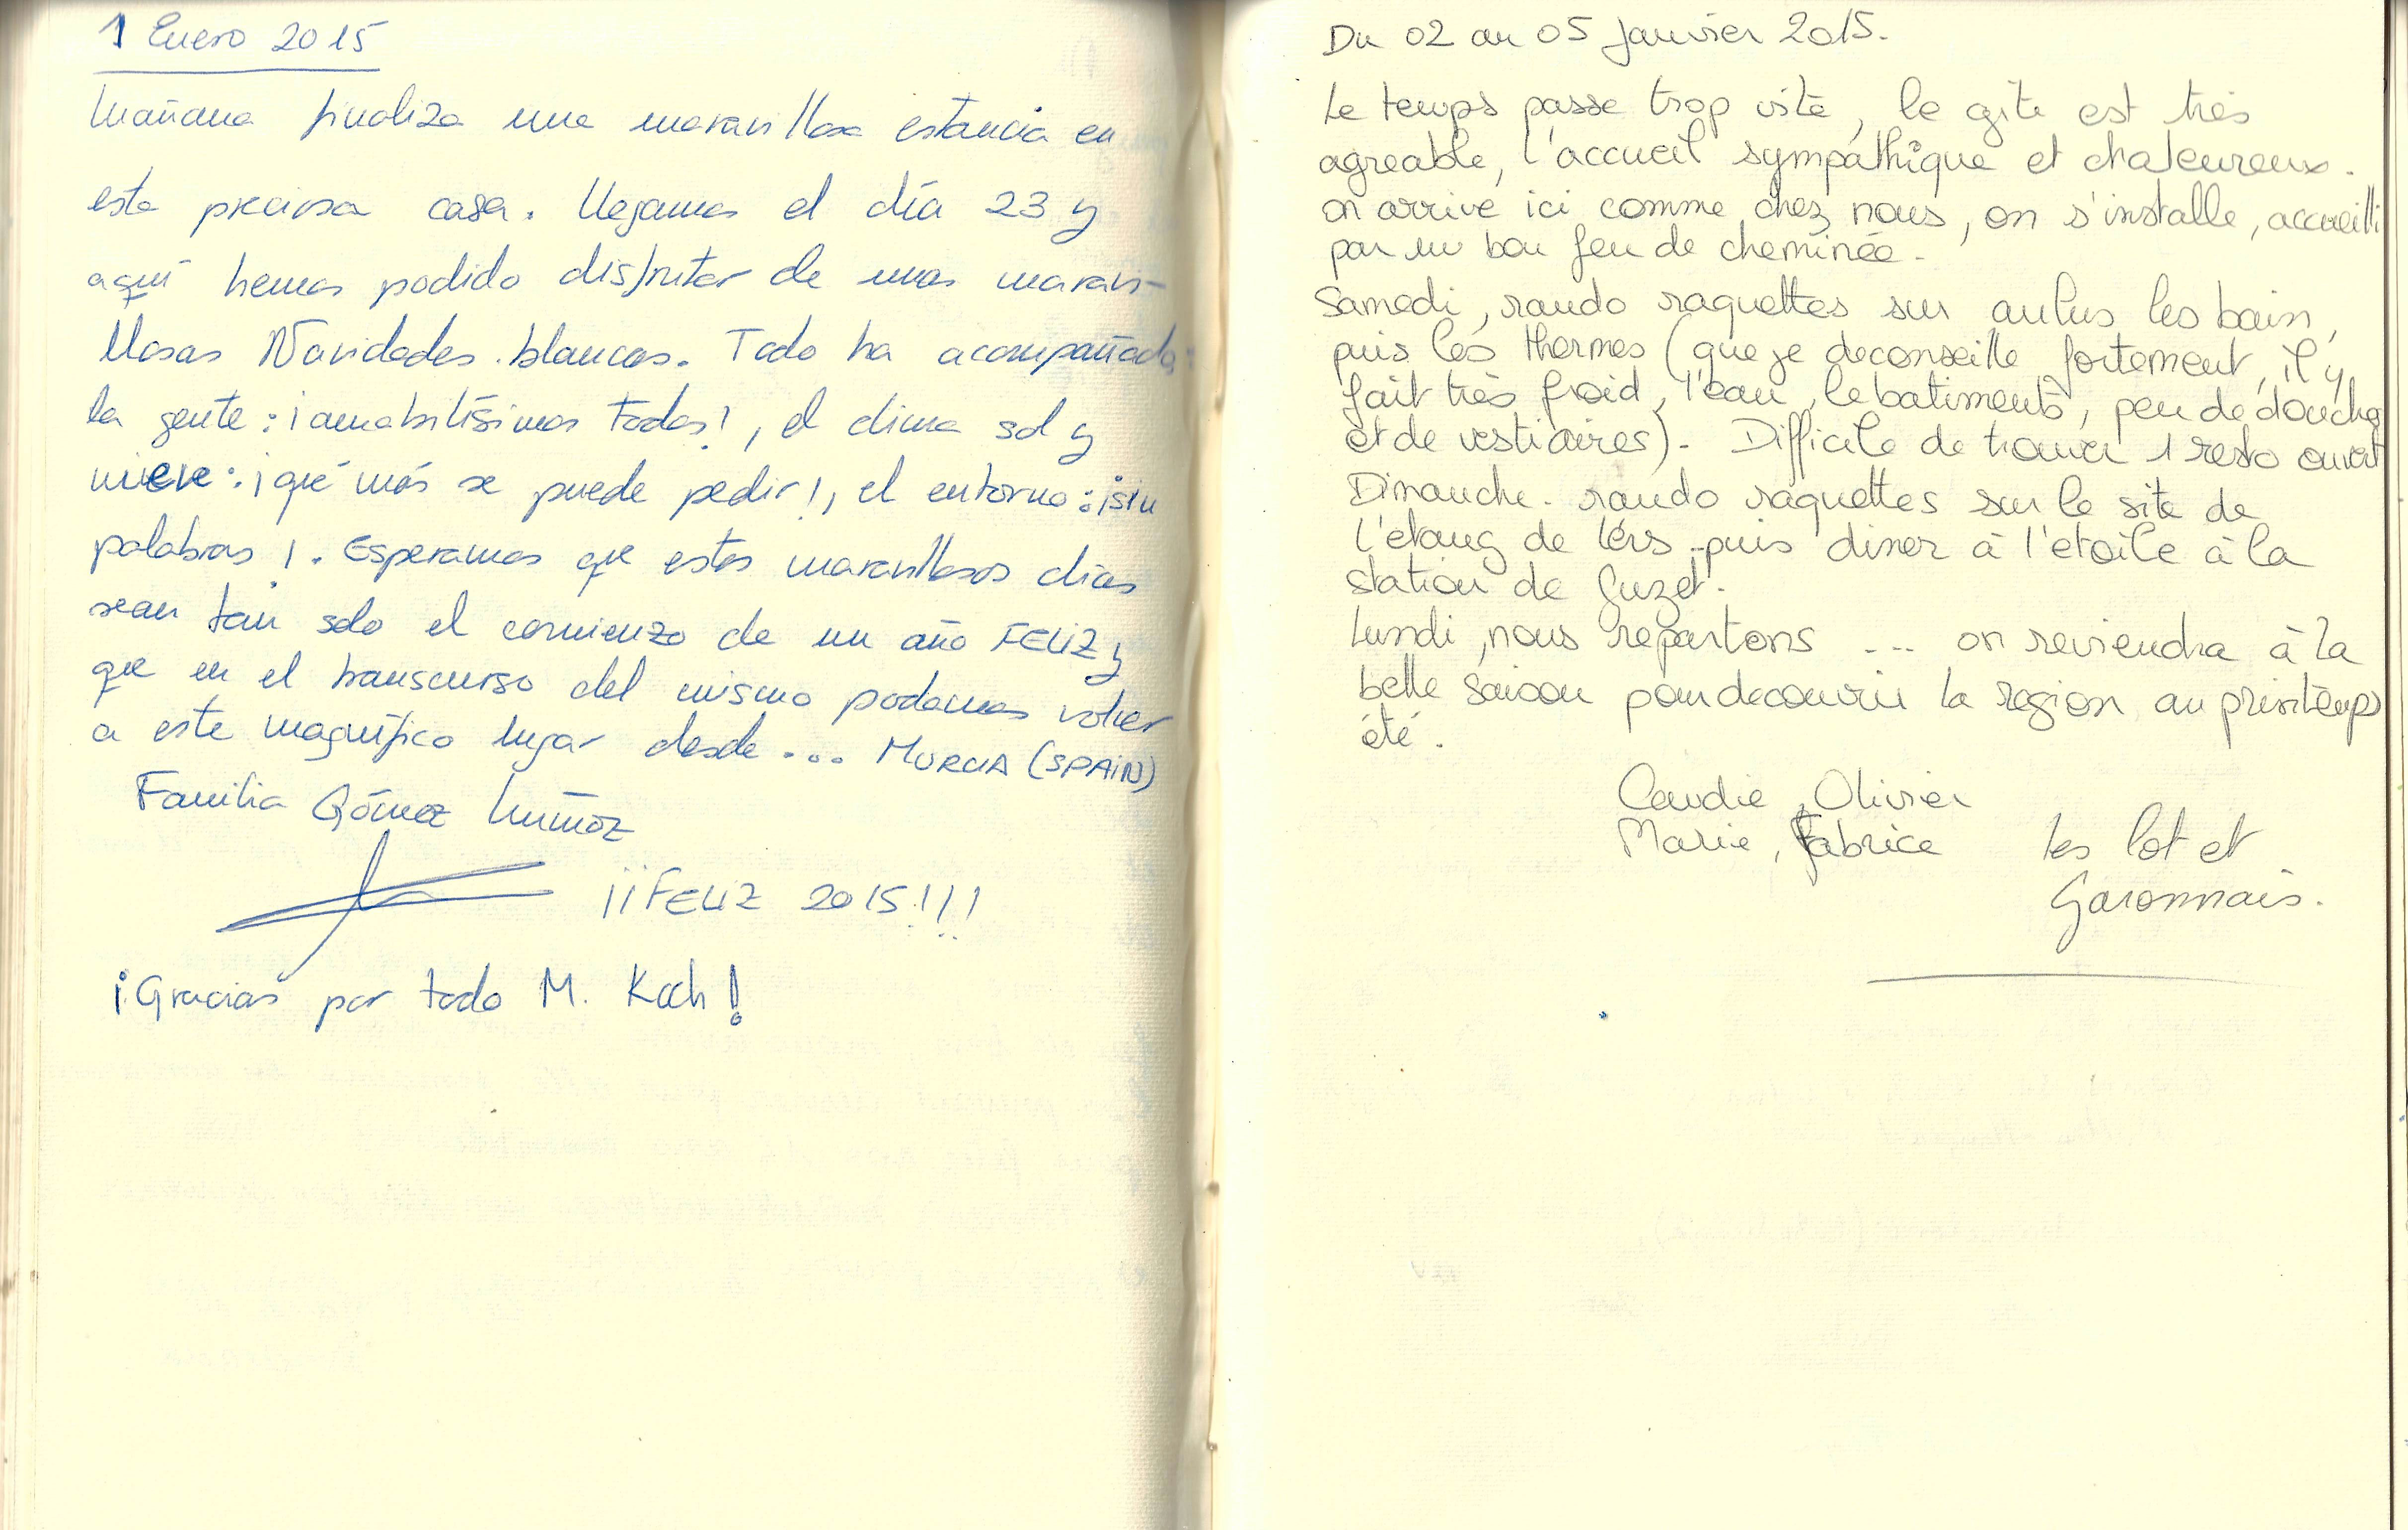 1 Enero 2015
Mañana finaliza una maravillosa estancia en
esta preciosa casa. Llegamos el día 23 y
aquí hemos podido disfrutar de unas maravi-
llosas Navidades blancas. Todo ha acompañado:
la gente: ¡amabilísimos todos!, el clima sol y
nieve: ¡qué más se puede pedir!, el entorno: ¡sin
palabras!. Esperamos que estos maravillosos días
sean tan solo el comienzo de un año FELIZ y
que en el transcurso del mismo podamos volver
a este magnífico lugar desde... MURCIA (SPAIN)
Familia Gómez Muñoz
¡¡FELIZ 2015!!!
¡Gracias por todo M. Koch!
Du 02 au 05 Janvier 2015.
Le temps passe trop vite, le gîte est très
agreable, l'accueil sympathique et chaleureux.
on arrive ici comme chez nous, on s'installe, accueilli
par un bon feu de cheminée.
Samedi, rando raquettes sur aulus les bain,
puis les thermes (que je deconseille fortement, il y
fait très froid, l'eau, le batiments, peu de douche
et de vestiaires). Difficile de trouver 1 resto ouvert
Dimanche. rando raquettes sur le site de
l'etang de lers puis diner à l'etoile à la
station de Guzet.
Lundi, nous repartons ... on reviendra à la
belle saison pour decouvrir la region au printemps
été.
Claudie, Olivier
Marie, Fabrice
Les lot et
Garonnais.